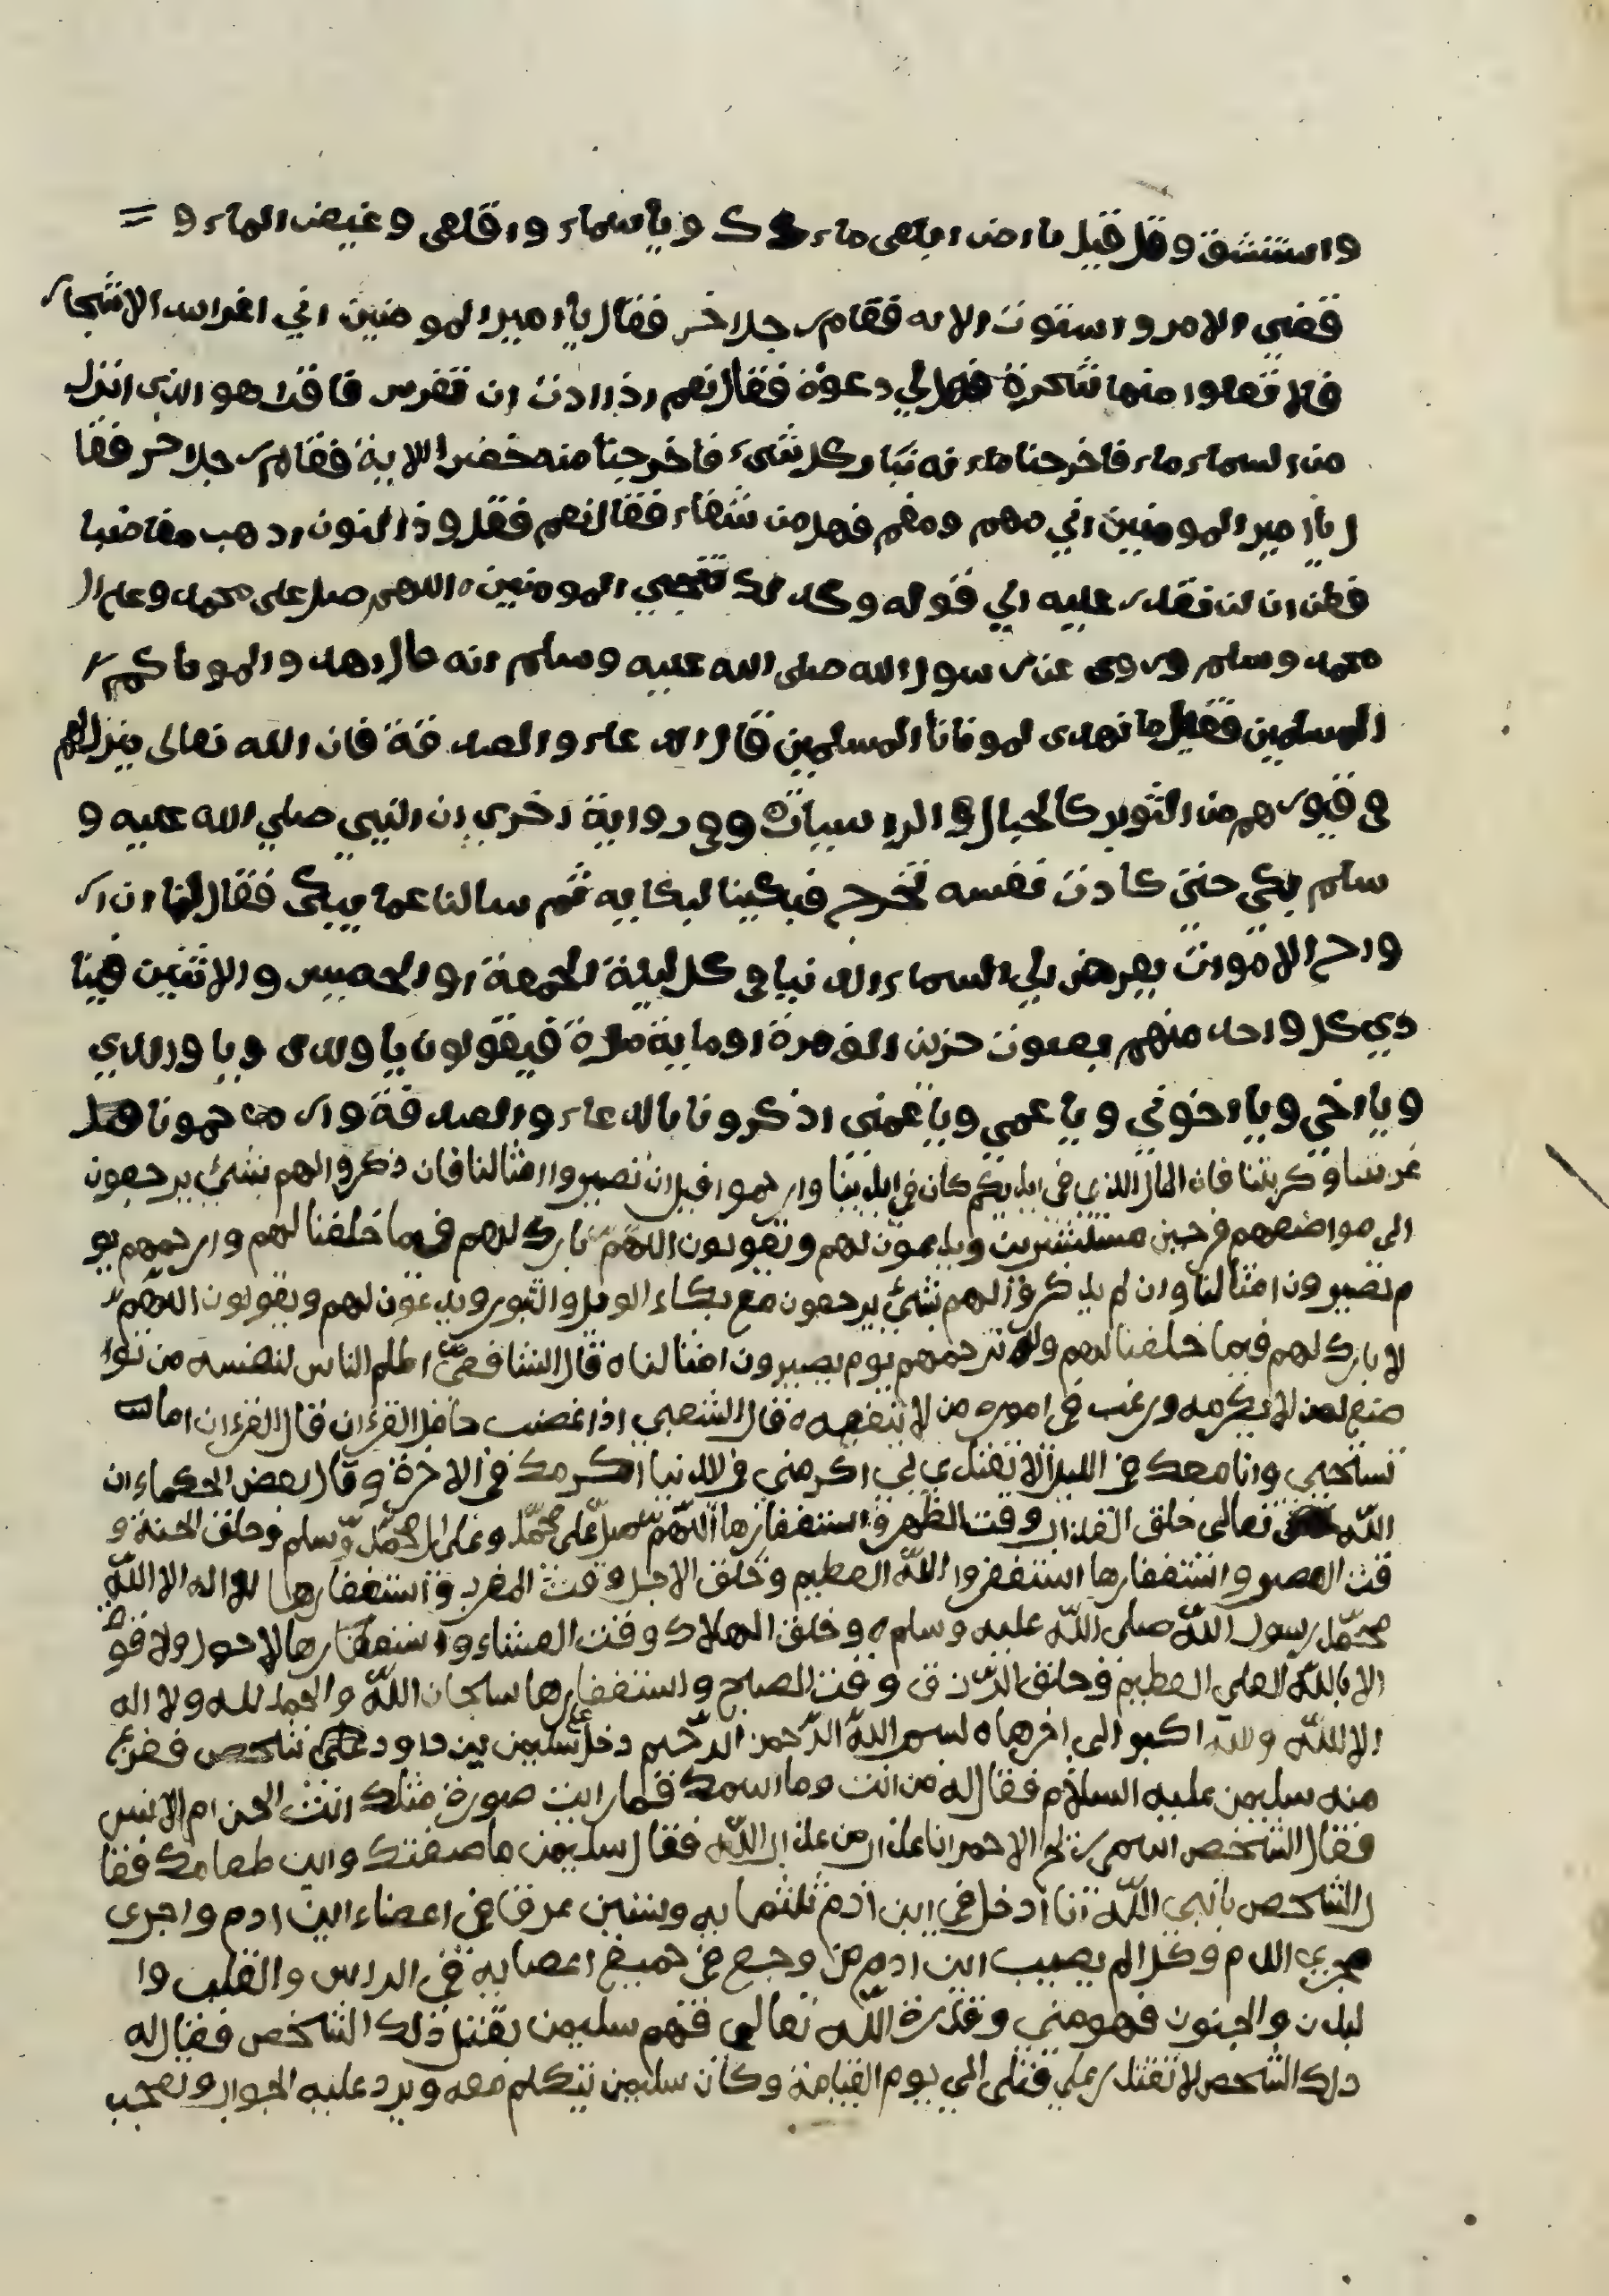 واستنشق وقل قيل يا ارض ابلعى ماءك ويا سماء واقلعى وغيض الماء و
قضى الامر واستوت الايه فقام رجل اخر فقال يا امير المومنين اني اغراس الاشجار
فلا تعلوا منها شجرة فهل لي دعوة فقال نعم اذا اردت ان تغرس فاقرا هو الذى انزل
من السماء ماء فاخرجنا ماء به نبات كل شىء فاخرجنا منه خضرا الاية فقام رجل اخر فقا
ل يا امير المومنين اني مهم ومغم فهل من شفاء فقال نعم فقل وذا النون اذهب مغاضبا
فظن ان لن نقدر عليه الي قوله وكذلك ننجي المومنين اللهم صل على محمد وعلى ال
محمد وسلم وروى عن رسول الله صلى الله عليه وسلم انه قال اهدوا لموتاكم
المسلمين فقيل ما نهدى لموتانا المسلمين قال الدعاء والصدقة فان الله تعالى ينزل لهم
فى قبورهم من الثوب كالجبال الراسيات وفى رواية اخرى ان النبي صلي الله عليه و
سلم بكى حتى كادت نفسه تخرج فبكينا لبكايه ثم سالنا عما يبكى فقال لنا ان ار
واح الاموات يعرض الي السماء الدنيا فى كل ليلة الجمعة او الخميس والاثنين فينا
دي كل واحد منهم بصوت حزين الف مرة او ماية مرة فيقولون يا ولدى ويا والدي
ويا اخي ويا اخوتي ويا عمي ويا عمتى اذكرونا بالدعاء والصدقة وارحمونا
غربتنا وكربتنا فان المال الذي في ايديكم كان في ايدينا وارحموا قبل ان تصيروا امثالنا فان ذكروا لهم بشئ يرجعون
الى مواضعهم فرحين مستبشرين ويدعون لهم ويقولون اللهم بارك لهم فيما خلفنا لهم وارحمهم يو
م تصيرون امثالنا وان لم يذكروا لهم بشئ يرجعون مع بكاء الويل والثبور ويدعون لهم ويقولون اللهم
لا بارك لهم فيما خلفنا لهم ولا ترحمهم يوم يصيرون امثالنا ه قال الشافعي اظلم الناس لنفسه من توا
ضع لمن لا يكرمه ورغب في اموره من لا ينفعه ه قال الشعبي اذا غضب حامل القرءان قال القرءان اما
تستحيي وانا معك في الليل الا تقتدي لي اكرمني في الدنيا اكرمك في الاخرة وقال بعض الحكماء ان
الله تعالى خلق وقت الظهر واستغفارها اللهم صل على محمد وعلى ال محمد وسلم وخلق الجنة و
قت العصر واستغفارها استغفروا الله العظيم وخلق الاجل وقت المغرب واستغفارها لا اله الا الله
محمد رسول الله صلى الله عليه وسلم ه وخلق الهلاك وقت العشاء واستغفارها لا حول ولا قوة
الا بالله العلي العظيم وخلق الرزق وقت الصبح واستغفارها سبحان الله والحمد لله ولا اله
الا الله والله اكبر الى اخرها ه بسم الله الرحمن الرحيم دخل سليمن بن داود على شخص ففزع
منه سليمن عليه السلام فقال له من انت وما اسمك فما رايت صورة مثلك انت الجن ام الانس
فقال الشخص اسمي ريح الاحمر انا عذاب من عذاب الله فقال سليمن ما صفتك واين طعامك فقا
ل الشخص يا نبي الله انا ادخل في ابن ادم ثلثماية وستين عرقا في اعضاء ابن ادم واجرى
مجرى الدم وكل الم يصيب ابن ادم من وجع في جميع اعضايه في الراس والقلب وا
لبدن والجنون فهو مني وقدرة الله تعالى فهم سليمن بقتل ذلك الشخص فقال له
ذلك الشخص لا تقتل قتلى الى يوم القيامة وكان سليمن يتكلم معه ويرد عليه الجواب وتعجب